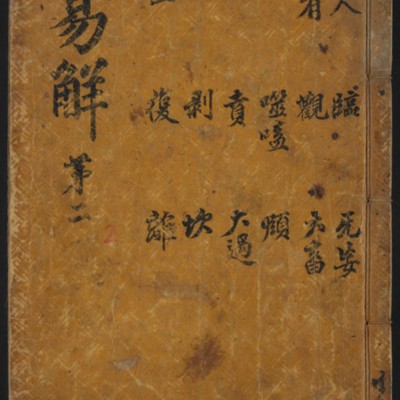 人 有
臨 觀 噬嗑 賁 剝 復
无妄 大畜 頤 大過 坎 離
易解 苐二